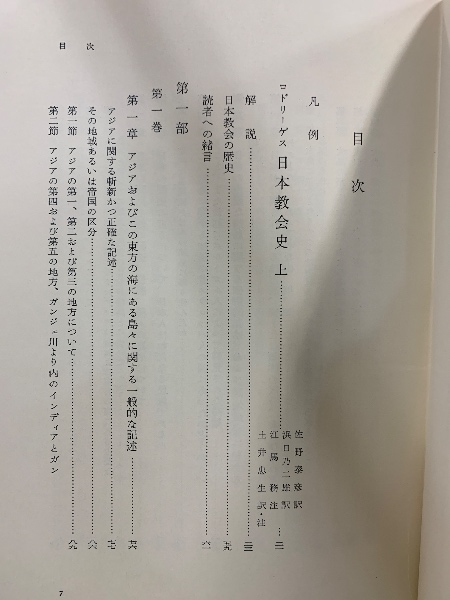 目次
凡例
ロドリーゲス 日本教会史 上
佐野泰彦訳
浜口乃二雄訳
江馬務注
土井忠生訳・注
解説
日本教会の歴史
読者への緒言
第一部
第一巻
第一章 アジアおよびこの東方の海にある島々に関する一般的な記述
アジアに関する斬新かつ正確な記述
その地域あるいは帝国の区分
第一節 アジアの第一、第二および第三の地方について
第二節 アジアの第四および第五の地方、ガンジェ川より内のインディアとガン
目次
7